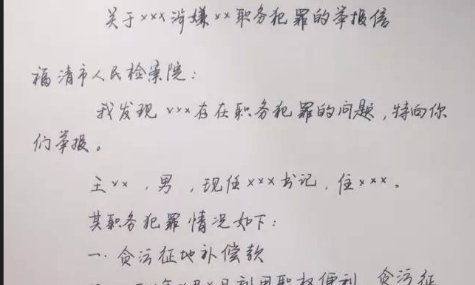 关于×××涉嫌××职务犯罪的举报信
福清市人民检察院：
我发现×××存在职务犯罪的问题，特向你
们举报。
王××，男，现任×××书记，住×××。
其职务犯罪情况如下：
一、贪污征地补偿款
利用职权便利，贪污征